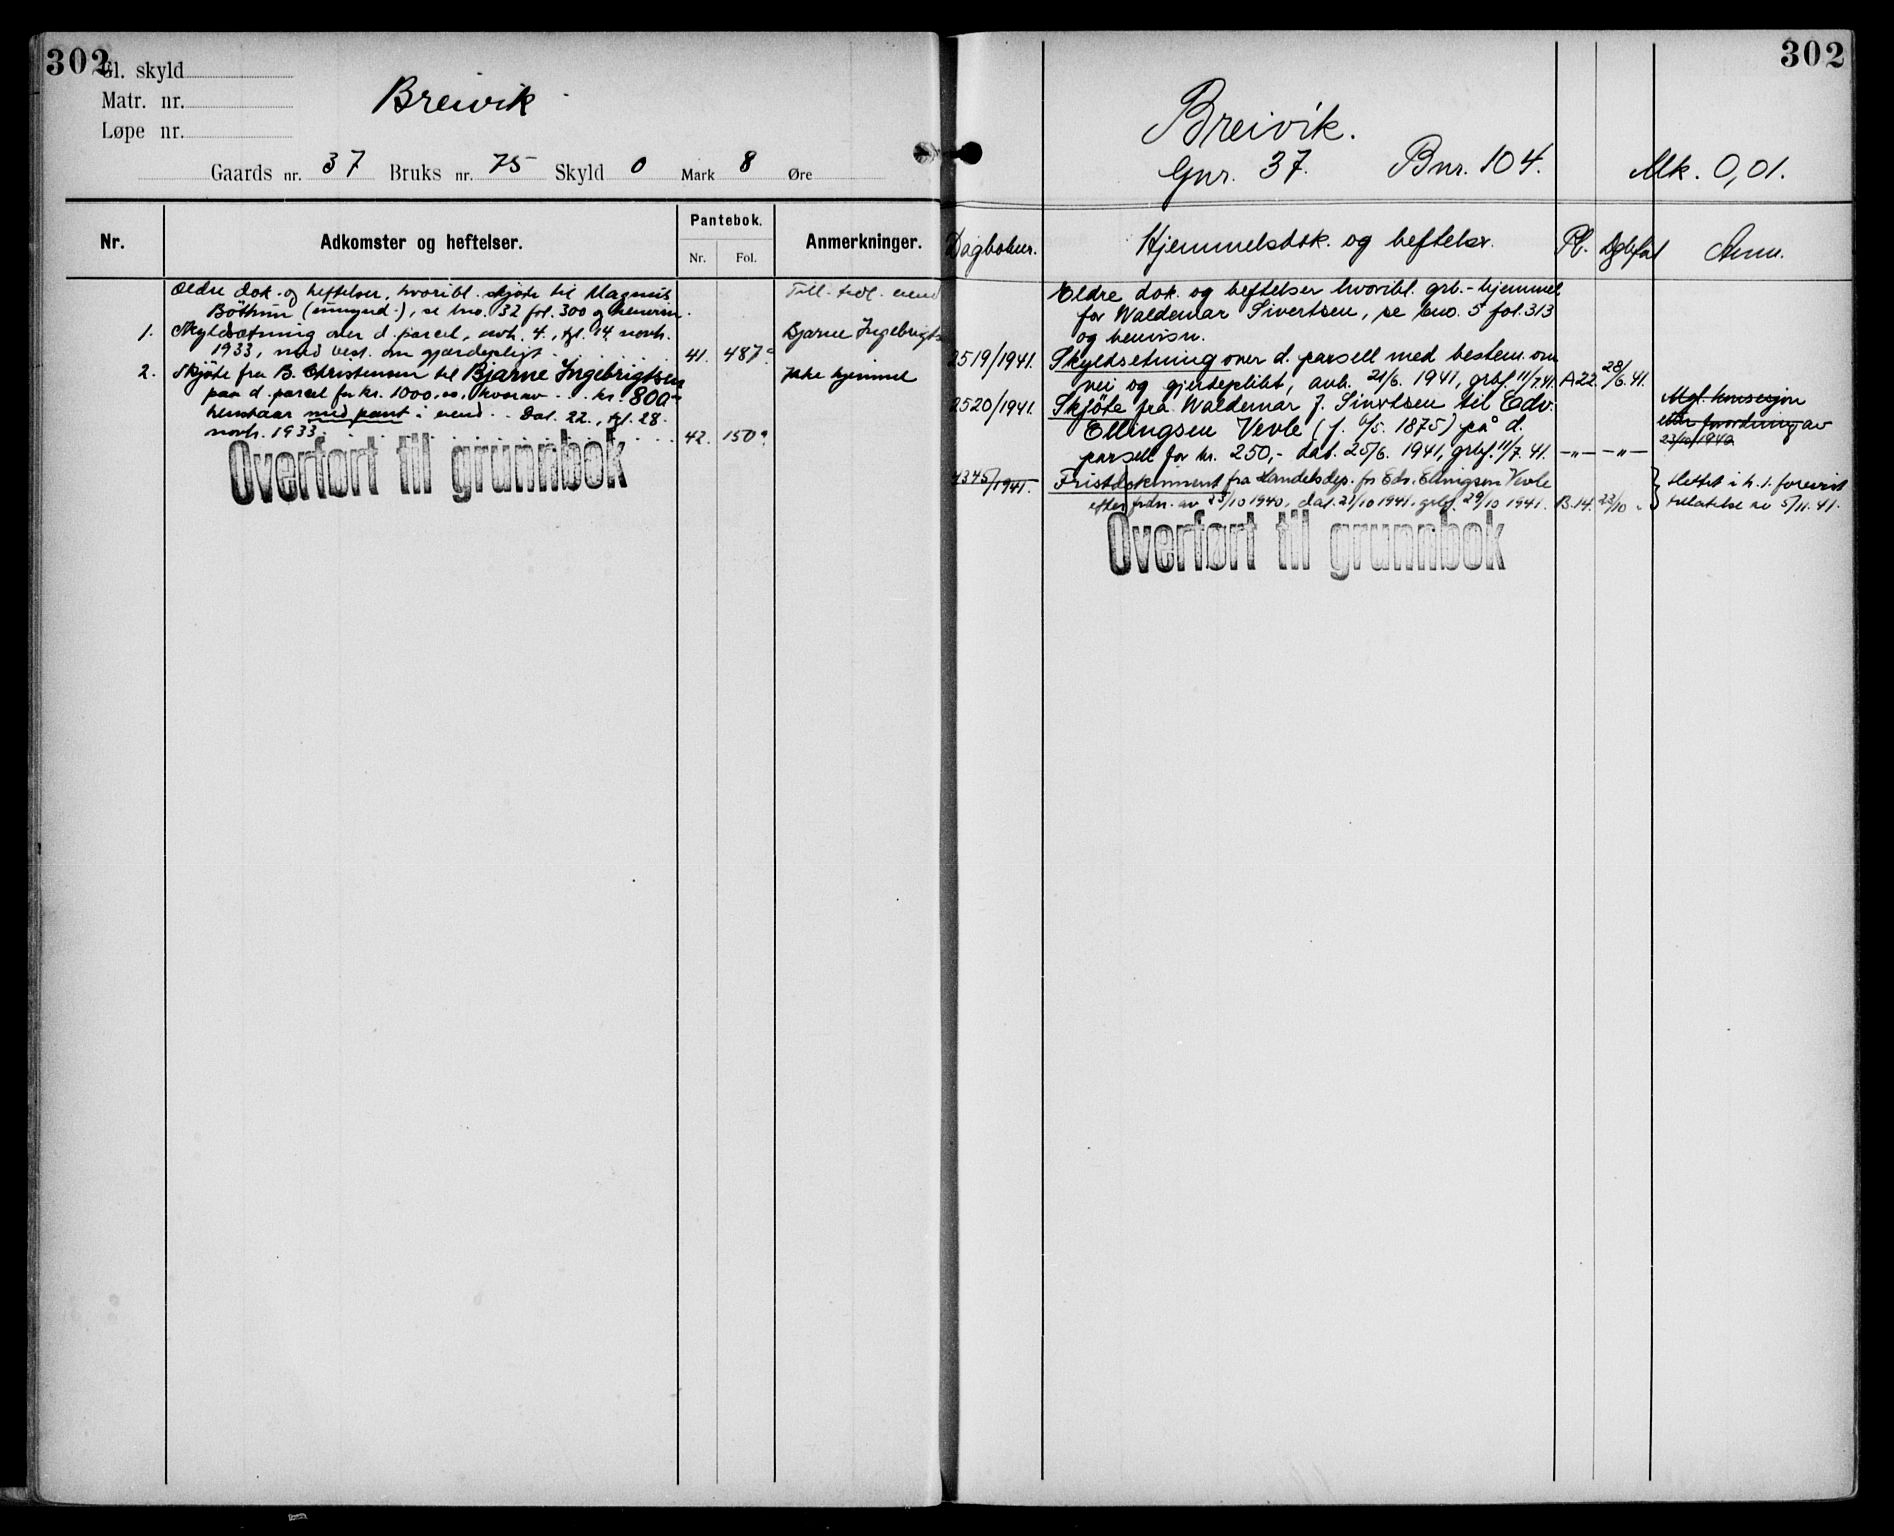 302
Gl. skyld
Matr. nr.
Løpe nr.
Breivik
Gaards nr. 37 Bruks nr. 75 Skyld 0 Mark 8 Øre
Nr.
Adkomster og heftelser.
Pantebok.
Nr. Fol.
Anmerkninger.
Ældre dok. og heftelser, hvoribl. skjøte til Magnus
Böthun (umynd.), se bno. 32 fol. 300 og henvisn.
1. Skyldsætning over d. parcel, avh. 4., tgl. 14. novb.
1933, med best. om gjerdepligt. 41. 487
2. Skjøte fra B. Christensen til Bjarne Ingebrigtsen
paa d. parcel for kr. 1000,00, hvorav kr. 800
henstaar med pant i eiend. Dat. 22., tgl. 28.
novb. 1933. 42. 150
Till. tidl. eiend
Bjarne Ingebrigts
ikke hjemmel
Overført til grunnbok
302
Breivik.
Gnr. 37. Bnr. 104. Mk. 0,01.
Dagboknr. Hjemmelsdok. og heftelser. Pb. Dgbfol Anm.
Eldre dok. og heftelser hvoribl. grb.-hjemmel
for Waldemar Sivertsen, se bno. 5 fol. 313
og henvisn.
2519/1941. Skyldsetning over d. parsell med bestem. om
vei og gjerdeplikt, avh. 21/6. 1941, grbf. 11/7.41. A 22. 28/6.41.
2520/1941. Skjöte fra Waldemar J. Sivertsen til Edv.
Ellingsen Vevle (f. 6/5. 1875) på d.
parsell for kr. 250,- dat. 25/6. 1941, grbf. 11/7. 41. —"— —"—
Mgl. konsesjon
etter forordning av
23/10/1940
4345/1941. Fristdokument fra Handelsdep. for Edv. Ellingsen Vevle
efter frdn. av 23/10 1940, dat. 21/10 1941. grbf. 29/10 1941. B.14. 23/10 "
slettet i h. t. forevist
tillatelse av 5/11. 41.
Overført til grunnbok